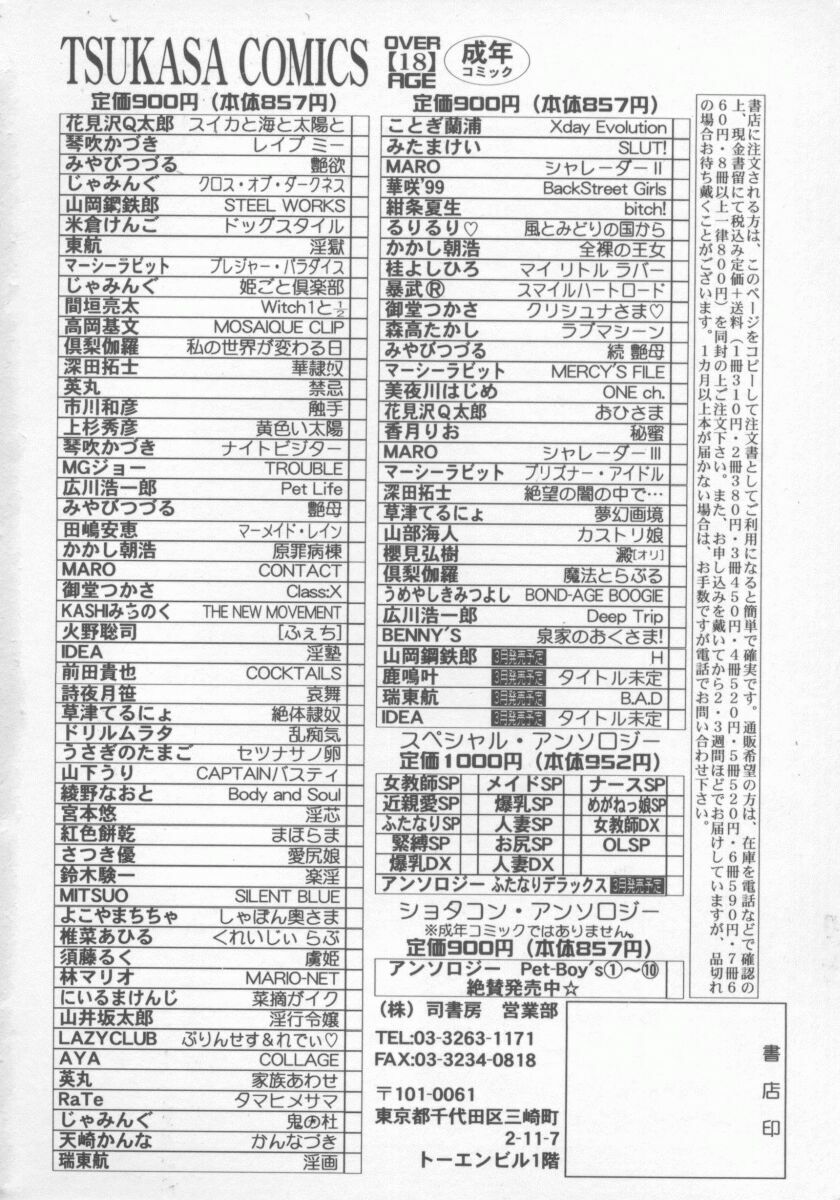 TSUKASA COMICS
OVER
【18】
AGE
成年
コミック
定価900円（本体857円）
花見沢Q太郎 スイカと海と太陽と
琴吹かづき レイプ ミー
みやびつづる 艶欲
じゃみんぐ クロス・オブ・ダークネス
山岡鋼鉄郎 STEEL WORKS
米倉けんご ドッグスタイル
東航 淫獄
マーシーラビット プレジャー・パラダイス
じゃみんぐ 姫ごと倶楽部
間垣亮太 Witch1と½
高岡基文 MOSAIQUE CLIP
倶梨伽羅 私の世界が変わる日
深田拓士 華隷奴
英丸 禁忌
市川和彦 触手
上杉秀彦 黄色い太陽
琴吹かづき ナイトビジター
MGジョー TROUBLE
広川浩一郎 Pet Life
みやびつづる 艶母
田嶋安恵 マーメイド・レイン
かかし朝浩 原罪病棟
MARO CONTACT
御堂つかさ Class:X
KASHIみちのく THE NEW MOVEMENT
火野聡司 [ふぇち]
IDEA 淫塾
前田貴也 COCKTAILS
詩夜月笹 哀舞
草津てるにょ 絶体隷奴
ドリルムラタ 乱痴気
うさぎのたまご セツナサノ卵
山下うり CAPTAINバスティ
綾野なおと Body and Soul
宮本悠 淫芯
紅色餅乾 まほらま
さつき優 愛尻娘
鈴木験一 楽淫
MITSUO SILENT BLUE
よこやまちちゃ しゃぼん奥さま
椎菜あひる くれいじぃ らぶ
須藤るく 虜姫
林マリオ MARIO-NET
にいるまけんじ 菜摘がイク
山井坂太郎 淫行令嬢
LAZYCLUB ぷりんせす＆れでぃ♡
AYA COLLAGE
英丸 家族あわせ
RaTe タマヒメサマ
じゃみんぐ 鬼の杜
天崎かんな かんなづき
瑞東航 淫画
定価900円（本体857円）
ことぎ蘭浦 Xday Evolution
みたまけい SLUT!
MARO シャレーダーⅡ
華咲'99 BackStreet Girls
紺条夏生 bitch!
るりるり♡ 風とみどりの国から
かかし朝浩 全裸の王女
桂よしひろ マイ リトル ラバー
暴武Ⓡ スマイルハートロード
御堂つかさ クリシュナさま♡
森高たかし ラブマシーン
みやびつづる 続 艶母
マーシーラビット MERCY'S FILE
美夜川はじめ ONE ch.
花見沢Q太郎 おひさま
香月りお 秘蜜
MARO シャレーダーⅢ
マーシーラビット プリズナー・アイドル
深田拓士 絶望の闇の中で…
草津てるにょ 夢幻画境
山部海人 カストリ娘
櫻見弘樹 澱[オリ]
倶梨伽羅 魔法とらぶる
うめやしきみつよし BOND-AGE BOOGIE
広川浩一郎 Deep Trip
BENNY'S 泉家のおくさま!
山岡鋼鉄郎 3月発売予定 H
鹿鳴叶 3月発売予定 タイトル未定
瑞東航 3月発売予定 B.A.D
IDEA 3月発売予定 タイトル未定
スペシャル・アンソロジー
定価1000円（本体952円）
女教師SP メイドSP ナースSP
近親愛SP 爆乳SP めがねっ娘SP
ふたなりSP 人妻SP 女教師DX
緊縛SP お尻SP OLSP
爆乳DX 人妻DX
アンソロジー ふたなりデラックス 3月発売予定
（株）司書房 営業部
TEL:03-3263-1171
FAX:03-3234-0818
〒101-0061
東京都千代田区三崎町
2-11-7
トーエンビル1階
書店印
書店に注文される方は、このページをコピーして注文書としてご利用になると簡単で確実です。通販希望の方は、在庫を電話などで確認の
上、現金書留にて税込み定価＋送料（1冊310円・2冊380円・3冊450円・4冊520円・5冊520円・6冊590円・7冊6
60円・8冊以上一律800円）を同封の上ご注文下さい。また、お申し込みを戴いてから2・3週間ほどでお届けしていますが、品切れ
の場合お待ち戴くことがございます。1カ月以上本が届かない場合は、お手数ですが電話でお問い合わせ下さい。